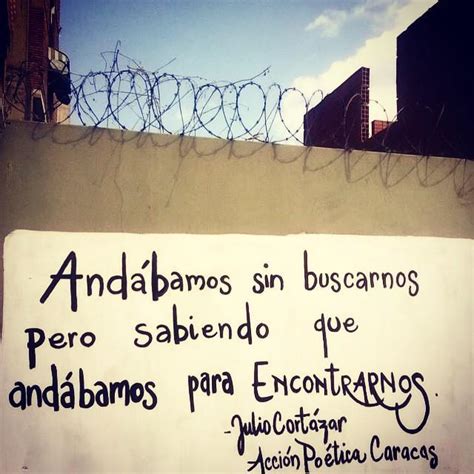 Andábamos sin buscarnos
pero sabiendo que
andábamos para ENCONTRARNOS.
-Julio Cortázar
Acción Poética Caracas